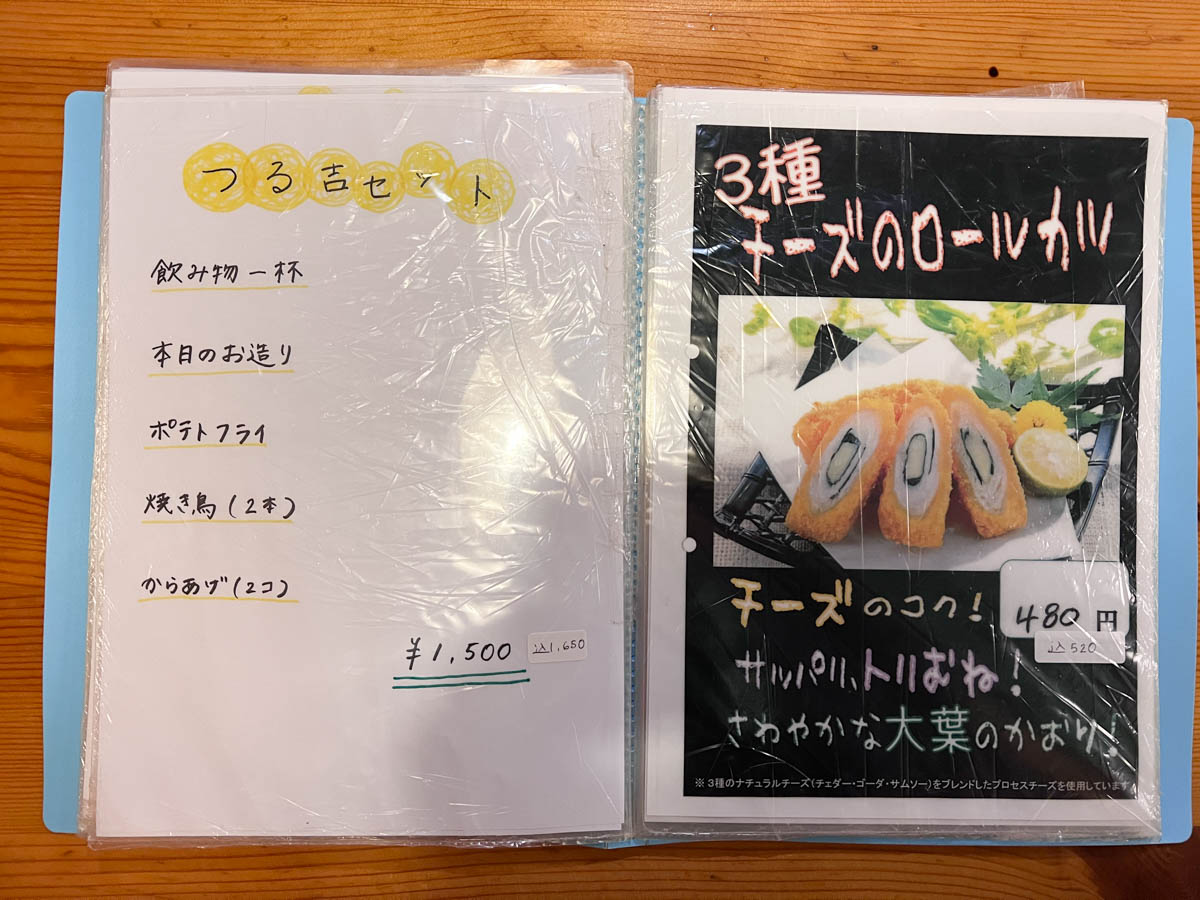 つる吉セット
飲み物一杯
本日のお造り
ポテトフライ
焼き鳥(2本)
からあげ(2コ)
¥1,500 込1,650
3種
チーズのロールカツ
チーズのコク!
480円
込520
サッパリ、トリむね!
さわやかな大葉のかおり!
※3種のナチュラルチーズ(チェダー・ゴーダ・サムソー)をブレンドしたプロセスチーズを使用しています